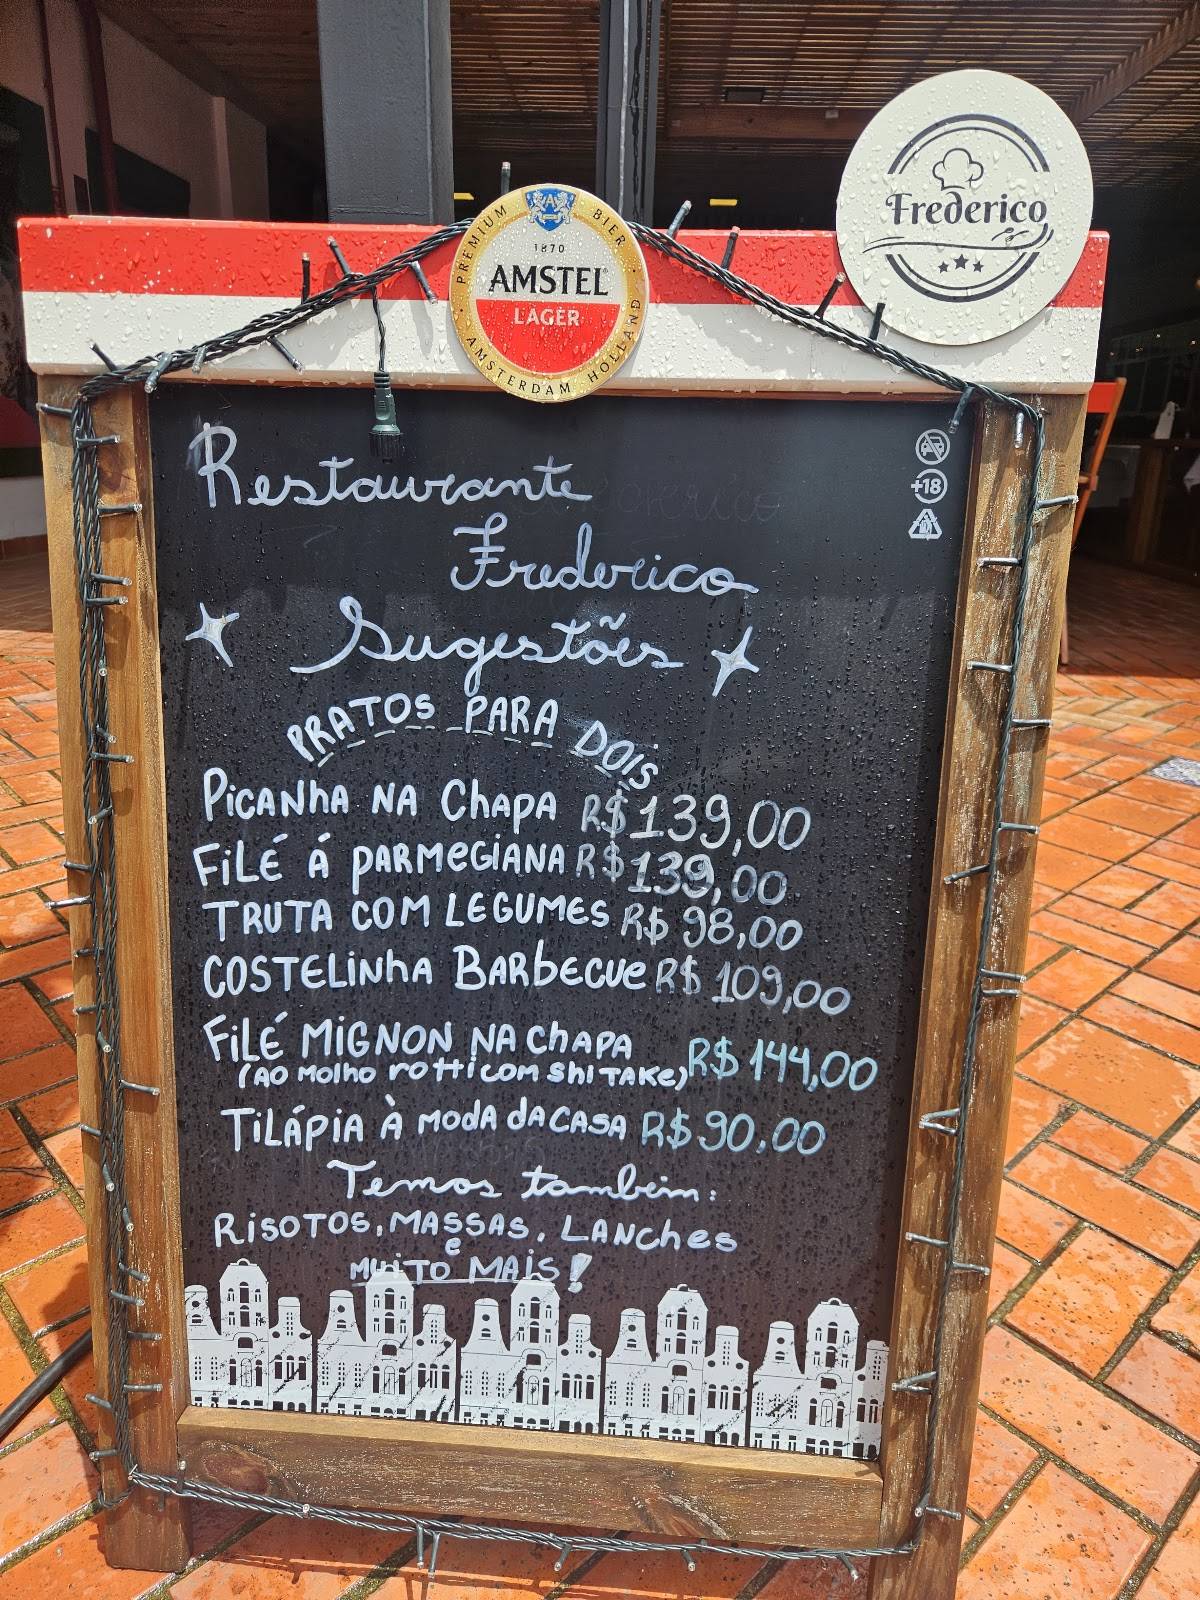 Frederico
PREMIUM BIER
1870
AMSTEL
LAGER
AMSTERDAM HOLLAND
+18
Restaurante
Frederico
Sugestões
PRATOS PARA DOIS
PICANHA NA CHAPA R$ 139,00
FILÉ Á PARMEGIANA R$ 139,00
TRUTA COM LEGUMES R$ 98,00
COSTELINHA BARBECUE R$ 109,00
FILÉ MIGNON NA CHAPA
(AO MOLHO ROTTI COM SHITAKE) R$ 144,00
TILÁPIA À MODA DA CASA R$ 90,00
Temos também:
RISOTOS, MASSAS, LANCHES
e
MUITO MAIS!